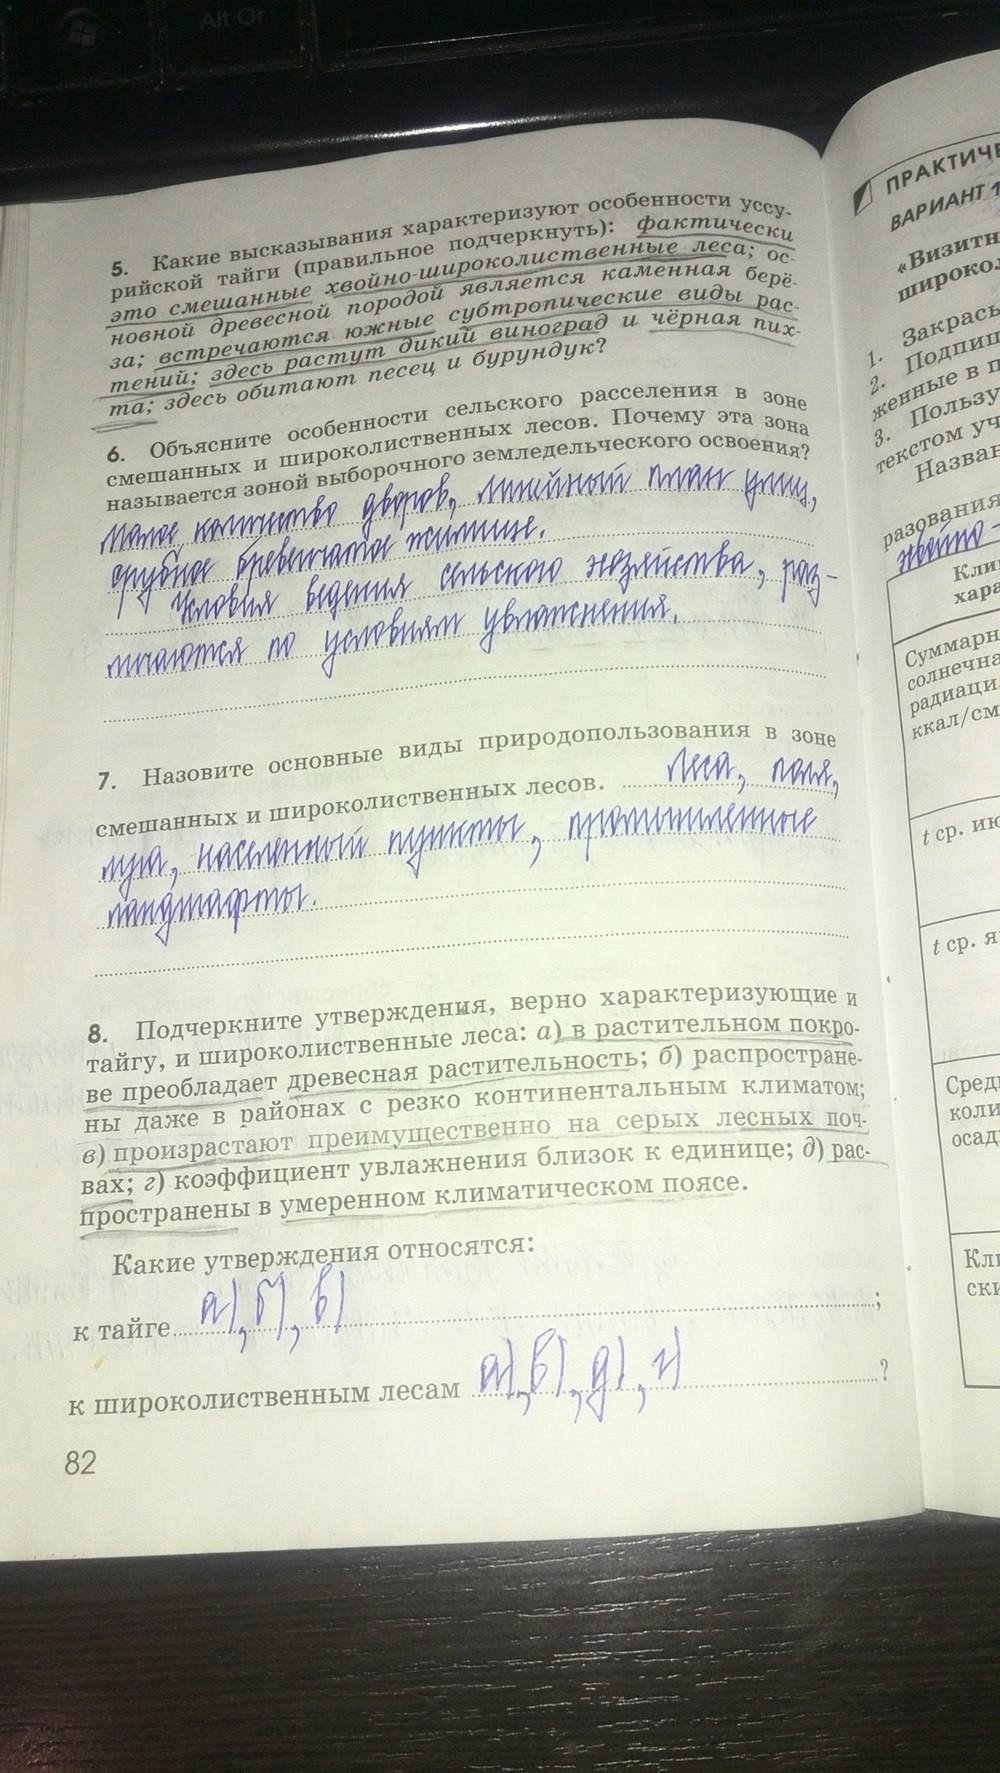 Alt Gr
5. Какие высказывания характеризуют особенности уссу-
рийской тайги (правильное подчеркнуть): фактически
это смешанные хвойно-широколиственные леса; ос-
новной древесной породой является каменная берё-
за; встречаются южные субтропические виды рас-
тений; здесь растут дикий виноград и чёрная пих-
та; здесь обитают песец и бурундук?
6. Объясните особенности сельского расселения в зоне
смешанных и широколиственных лесов. Почему эта зона
называется зоной выборочного земледельческого освоения?
Малое количество дворов, линейный план улиц,
срубное бревенчатое жилище.
Условия ведения сельского хозяйства, раз-
личаются по условиям увлажнения.
7. Назовите основные виды природопользования в зоне
смешанных и широколиственных лесов. Леса, поля,
луга, населенный пункты, промышленные
ландшафты.
8. Подчеркните утверждения, верно характеризующие и
тайгу, и широколиственные леса: а) в растительном покро-
ве преобладает древесная растительность; б) распростране-
ны даже в районах с резко континентальным климатом;
в) произрастают преимущественно на серых лесных поч-
вах; г) коэффициент увлажнения близок к единице; д) рас-
пространены в умеренном климатическом поясе.
Какие утверждения относятся:
к тайге а), б), в) ;
к широколиственным лесам а), в), д), г) ?
82
ПРАКТИЧЕ
ВАРИАНТ 1
«Визитн
широкол
1. Закрась
2. Подпиш
женные в п
3. Пользу
текстом уч
Назван
разования
хвойно-
Кли
хара
Суммарн
солнечна
радиаци
ккал/см
t ср. ию
t ср. я
Сред
коли
осад
Кл
ски